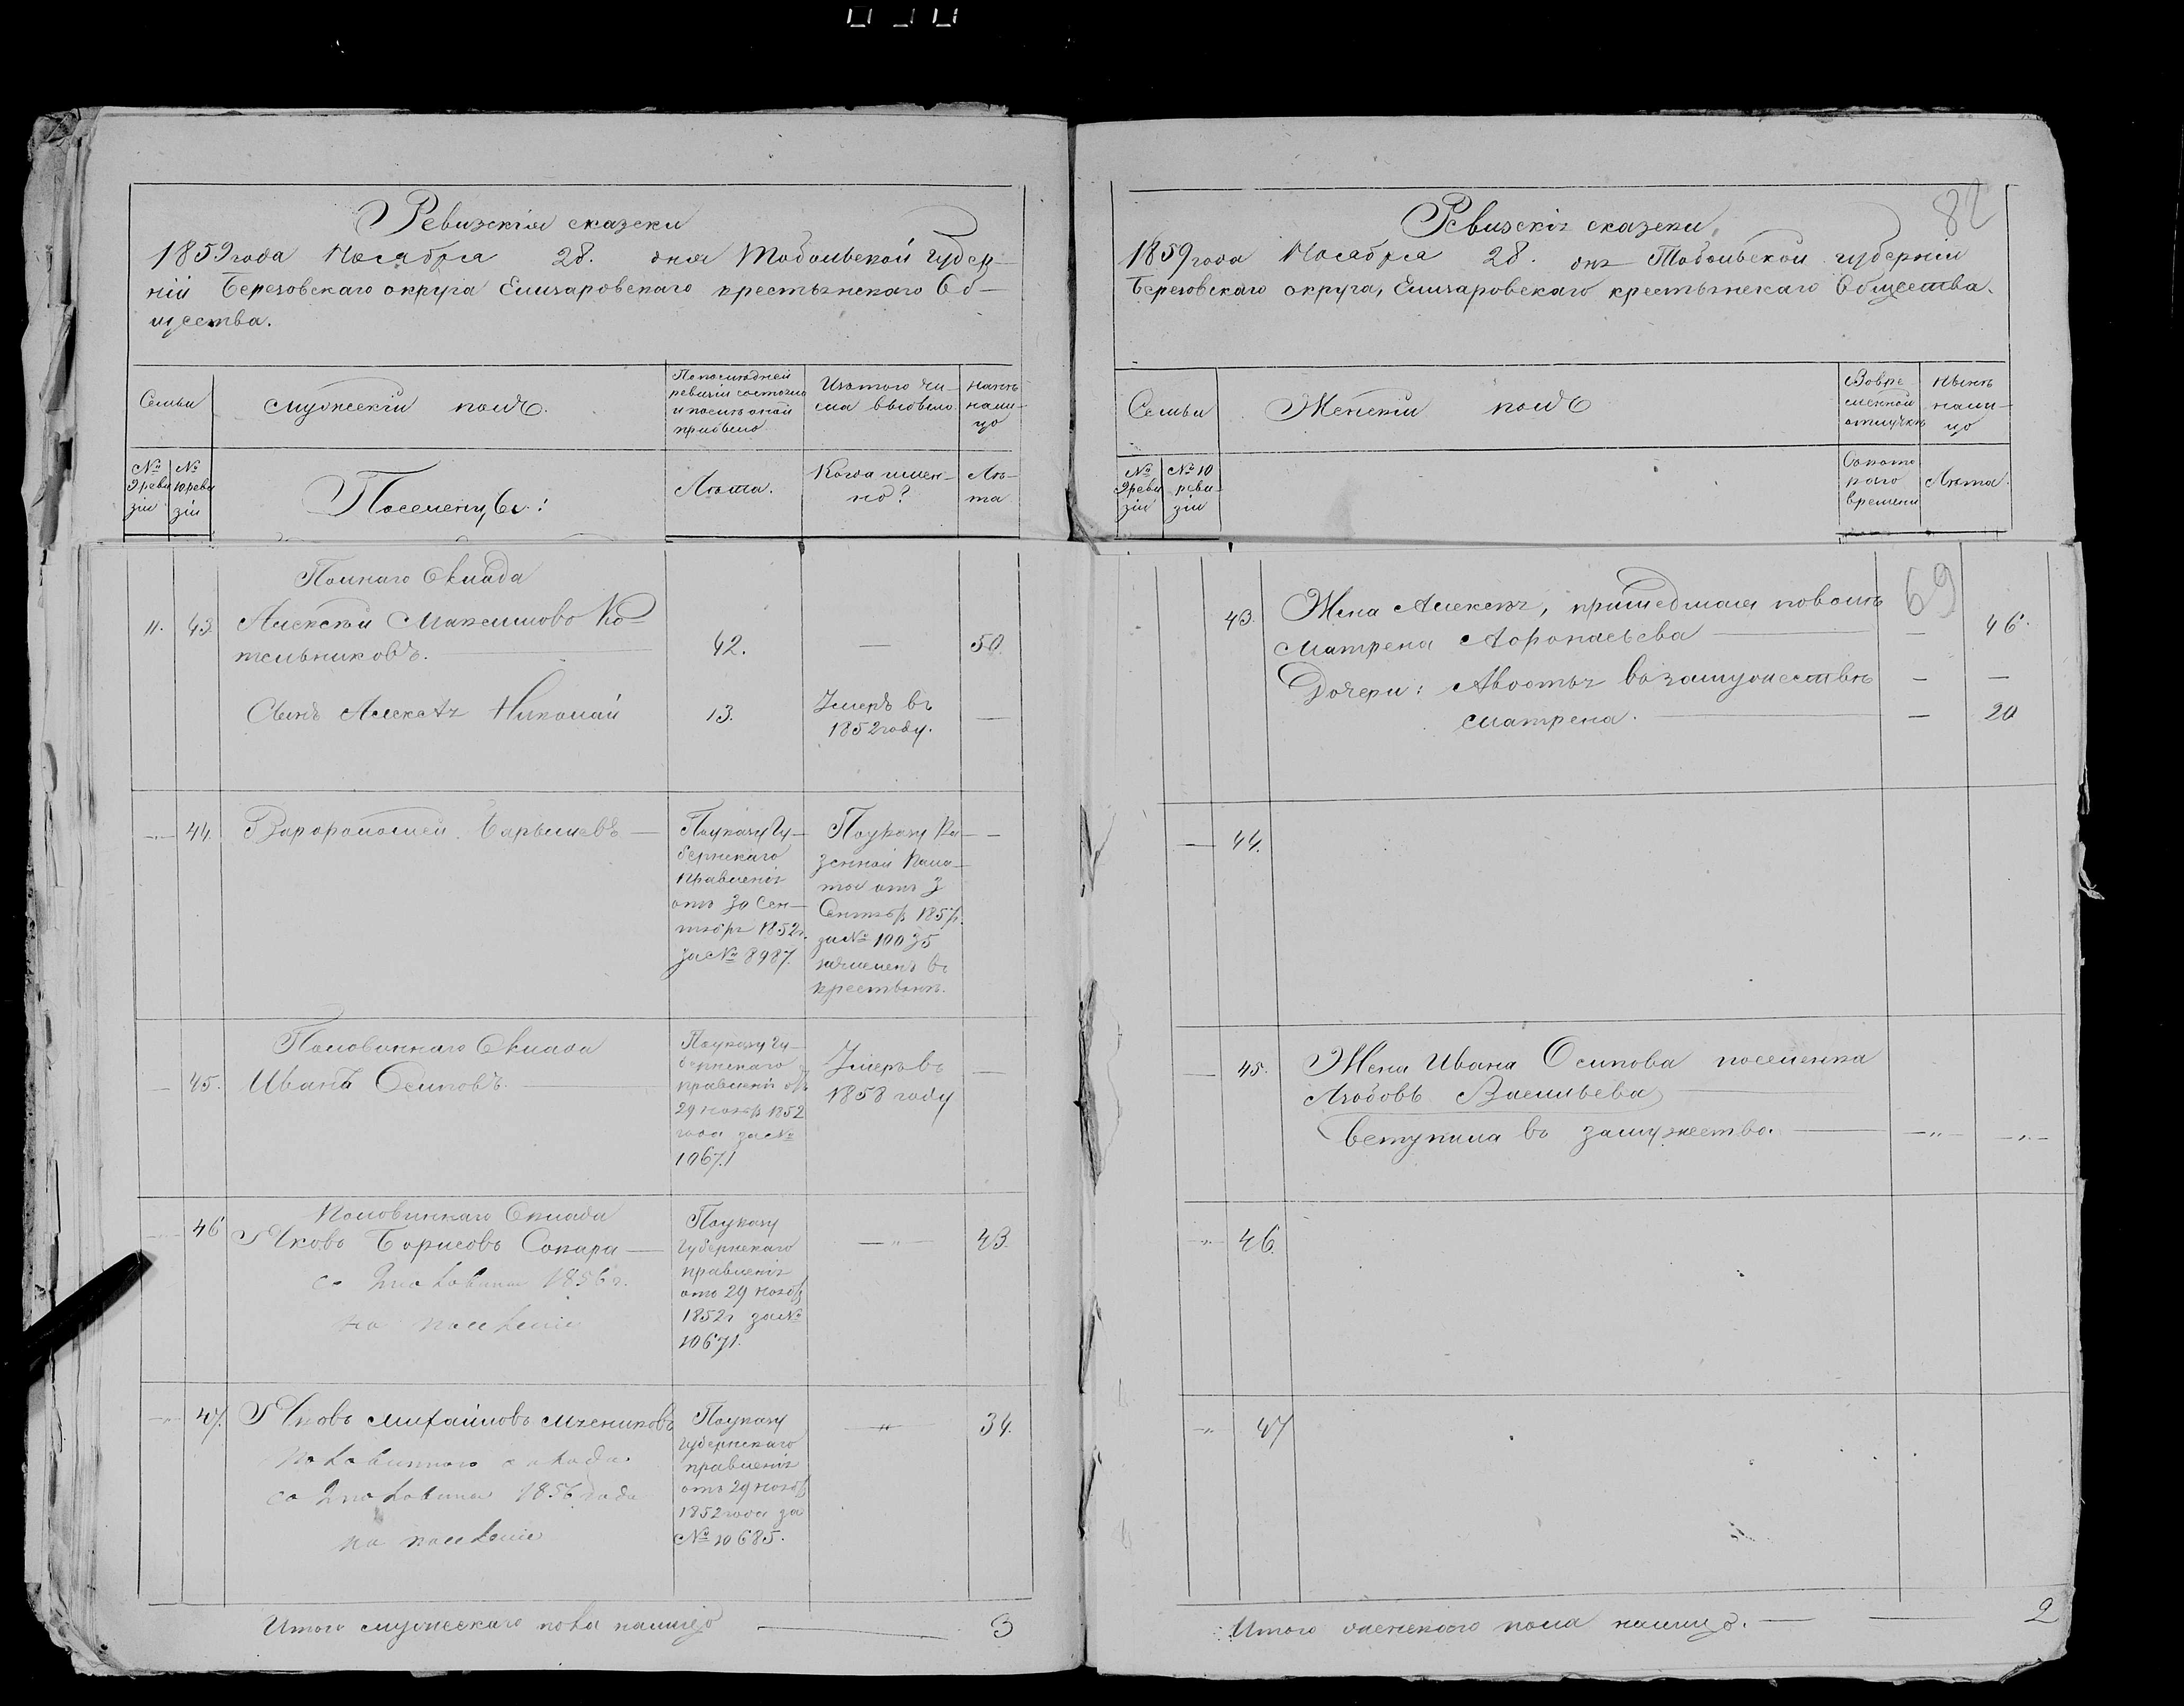 Ревизскія сказки
1859 года Ноября 28. дня Тобольской Губер-
ніи Березовскаго округа Елизаровскаго крестьянскаго Об-
щества.
Семьи
Мужескій полъ.
По последней
ревизіи состояло
и после оной
прибыло
Изътого чи-
сла выбыло
ныне
нали-
цо
№ 9 реви зіи
№ 10 реви зіи
Поселенцы:
Лѣта.
Когда имен-
но?
Лѣ-
та
Полнаго Оклада
11. 43. Алексѣй Максимовъ Ко-
тельниковъ. 42. — 50.
Сынъ Алексѣя Николай 13. Умеръ въ
1852 году. —
44. Варфоломей Барышевъ —
По указу Гу-
бернскаго
Правленія
отъ 30 Сен-
тября 1852 г.
за № 8987.
По указу Ка-
зенной Пала-
ты отъ 3
Сентяб. 1857 г.
за № 10035
зачисленъ въ
крестьяне.
Половиннаго Оклада
45. Иванъ Осиповъ.
По указу Гу-
бернскаго
правленія отъ
29 нояб. 1852
года за №
10671
Умеръ въ
1858 году
—
Половиннаго Оклада
46 Яковъ Борисовъ Сапара —
съ 2 половины 1856 г.
на поселеніи
По указу
Губернскаго
правленія
отъ 29 нояб.
1852 г за №
10671.
— „ — 43.
47. Яковъ Михайловъ Мчениковъ
половиннаго оклада
со 2 половины 1856 года
на поселеніи
По указу
Губернскаго
правленія
отъ 29 нояб.
1852 года за
№ 10685.
— „ — 34.
Итого мужескаго пола налицо — 3
82
Ревизскія сказки,
1859 года Ноября 28. дня Тобольской губерніи
Березовскаго округа, Елизаровскаго крестьянскаго Общества.
Семьи
Женскій полъ
Вовре
менной
отлучке
ныне
нали-
цо
№ 9 реви зіи
№ 10 реви зіи
Съкото
раго
времени
Лѣта.
69
43. Жена Алексѣя, пришедшая поволѣ
Матрена Афонасьева — — 46.
Дочери: Авдотья въ замужествѣ — —
Матрена. — — 20
— 44.
— 45. Жена Ивана Осипова поселенка
Любовь Васильева
вступила въ замужество. — — „ — — „ —
— „ — 46.
— „ — 47
Итого женскаго пола налицо. — — 2